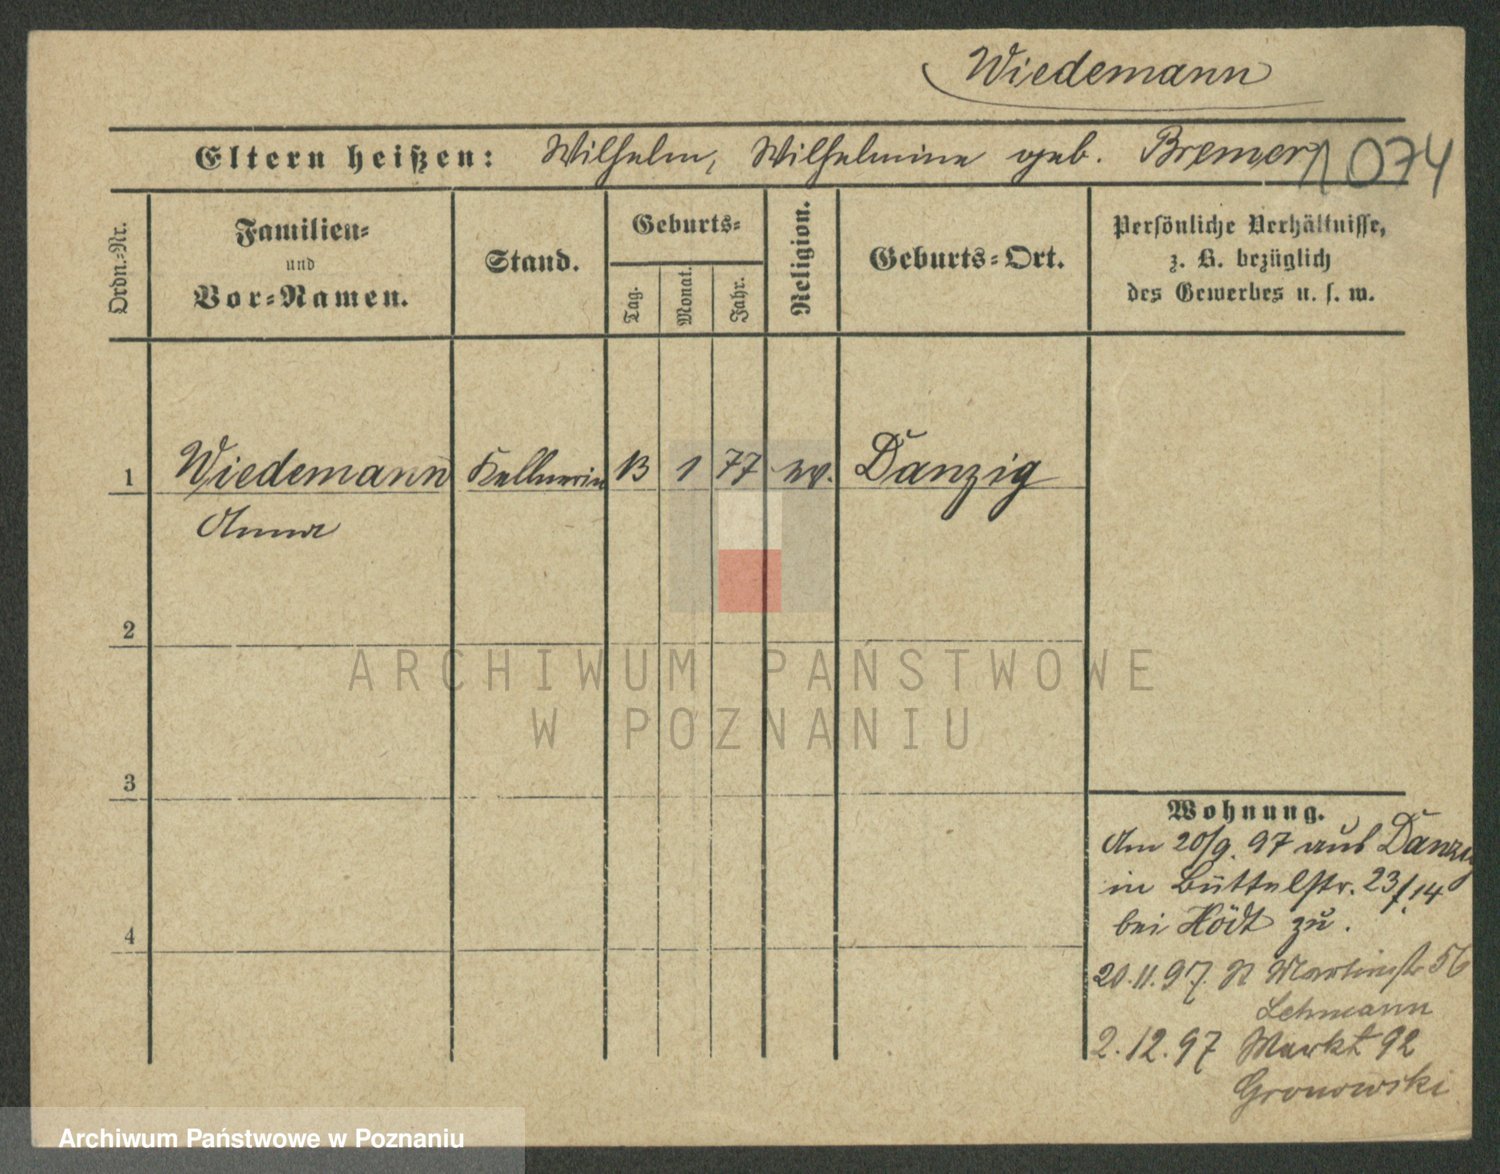 Wiedemann
Eltern heißen: Wilhelm, Wilhelmine geb. Bremer
1074
Ordn.-Nr.
Familien-
und
Vor-Namen.
Stand.
Geburts-
Tag.
Monat.
Jahr.
Religion.
Geburts-Ort.
Persönliche Verhältnisse,
z. B. bezüglich
des Gewerbes u. s. w.
1 Wiedemann Kellnerin 13 1 77 ev. Danzig
Anna
2
ARCHIWUM PAŃSTWOWE
W POZNANIU
3
4
Wohnung.
Am 20/9. 97 aus Danzig
in Büttelstr. 23/14
bei Hödt zu.
20.11.97. N Martinstr 56
Lehmann
2.12.97 Markt 92
Gronowski
Archiwum Państwowe w Poznaniu